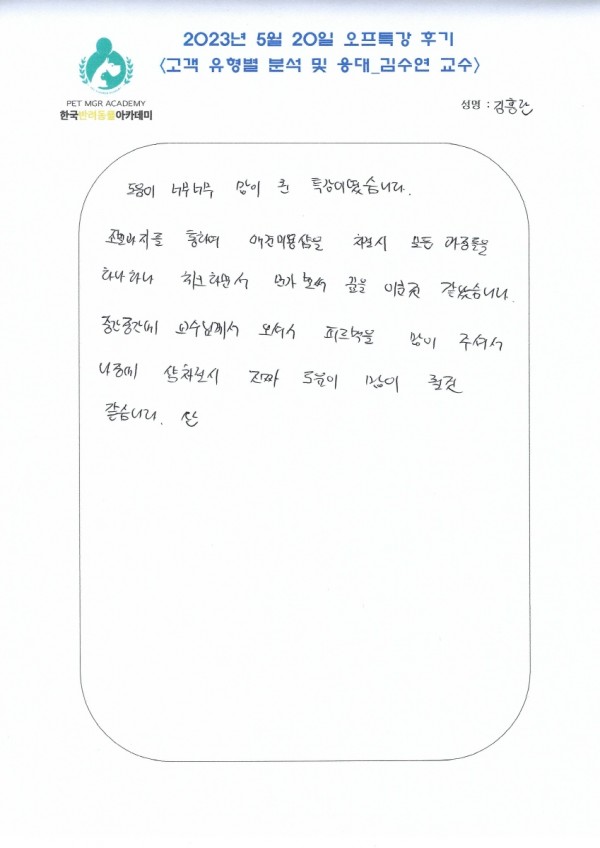 2023년 5월 20일 오프특강 후기
<고객 유형별 분석 및 응대_김수연 교수>
PET MGR ACADEMY
한국반려동물아카데미
성명 : 김흥란
도움이 너무너무 많이 된 특강이였습니다.
통하여 애견미용샵을 차릴시 모든 과정들을
하나하나 체크하면서 뭔가 꿈을 이룬것 같았습니다.
중간중간에 교수님께서 오셔서 피드백을 많이 주셔서
나중에 샵차릴시 진짜 도움이 많이 될것
같습니다.